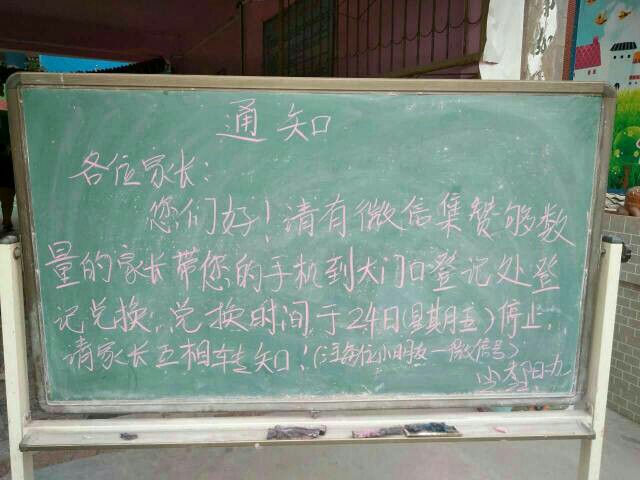 通知
各位家长：
您们好！请有微信集赞够数
量的家长带您的手机到大门口登记处登
记兑换，兑换时间，于24日(星期五)停止，
请家长互相转知！(注每位小朋友一微信号)